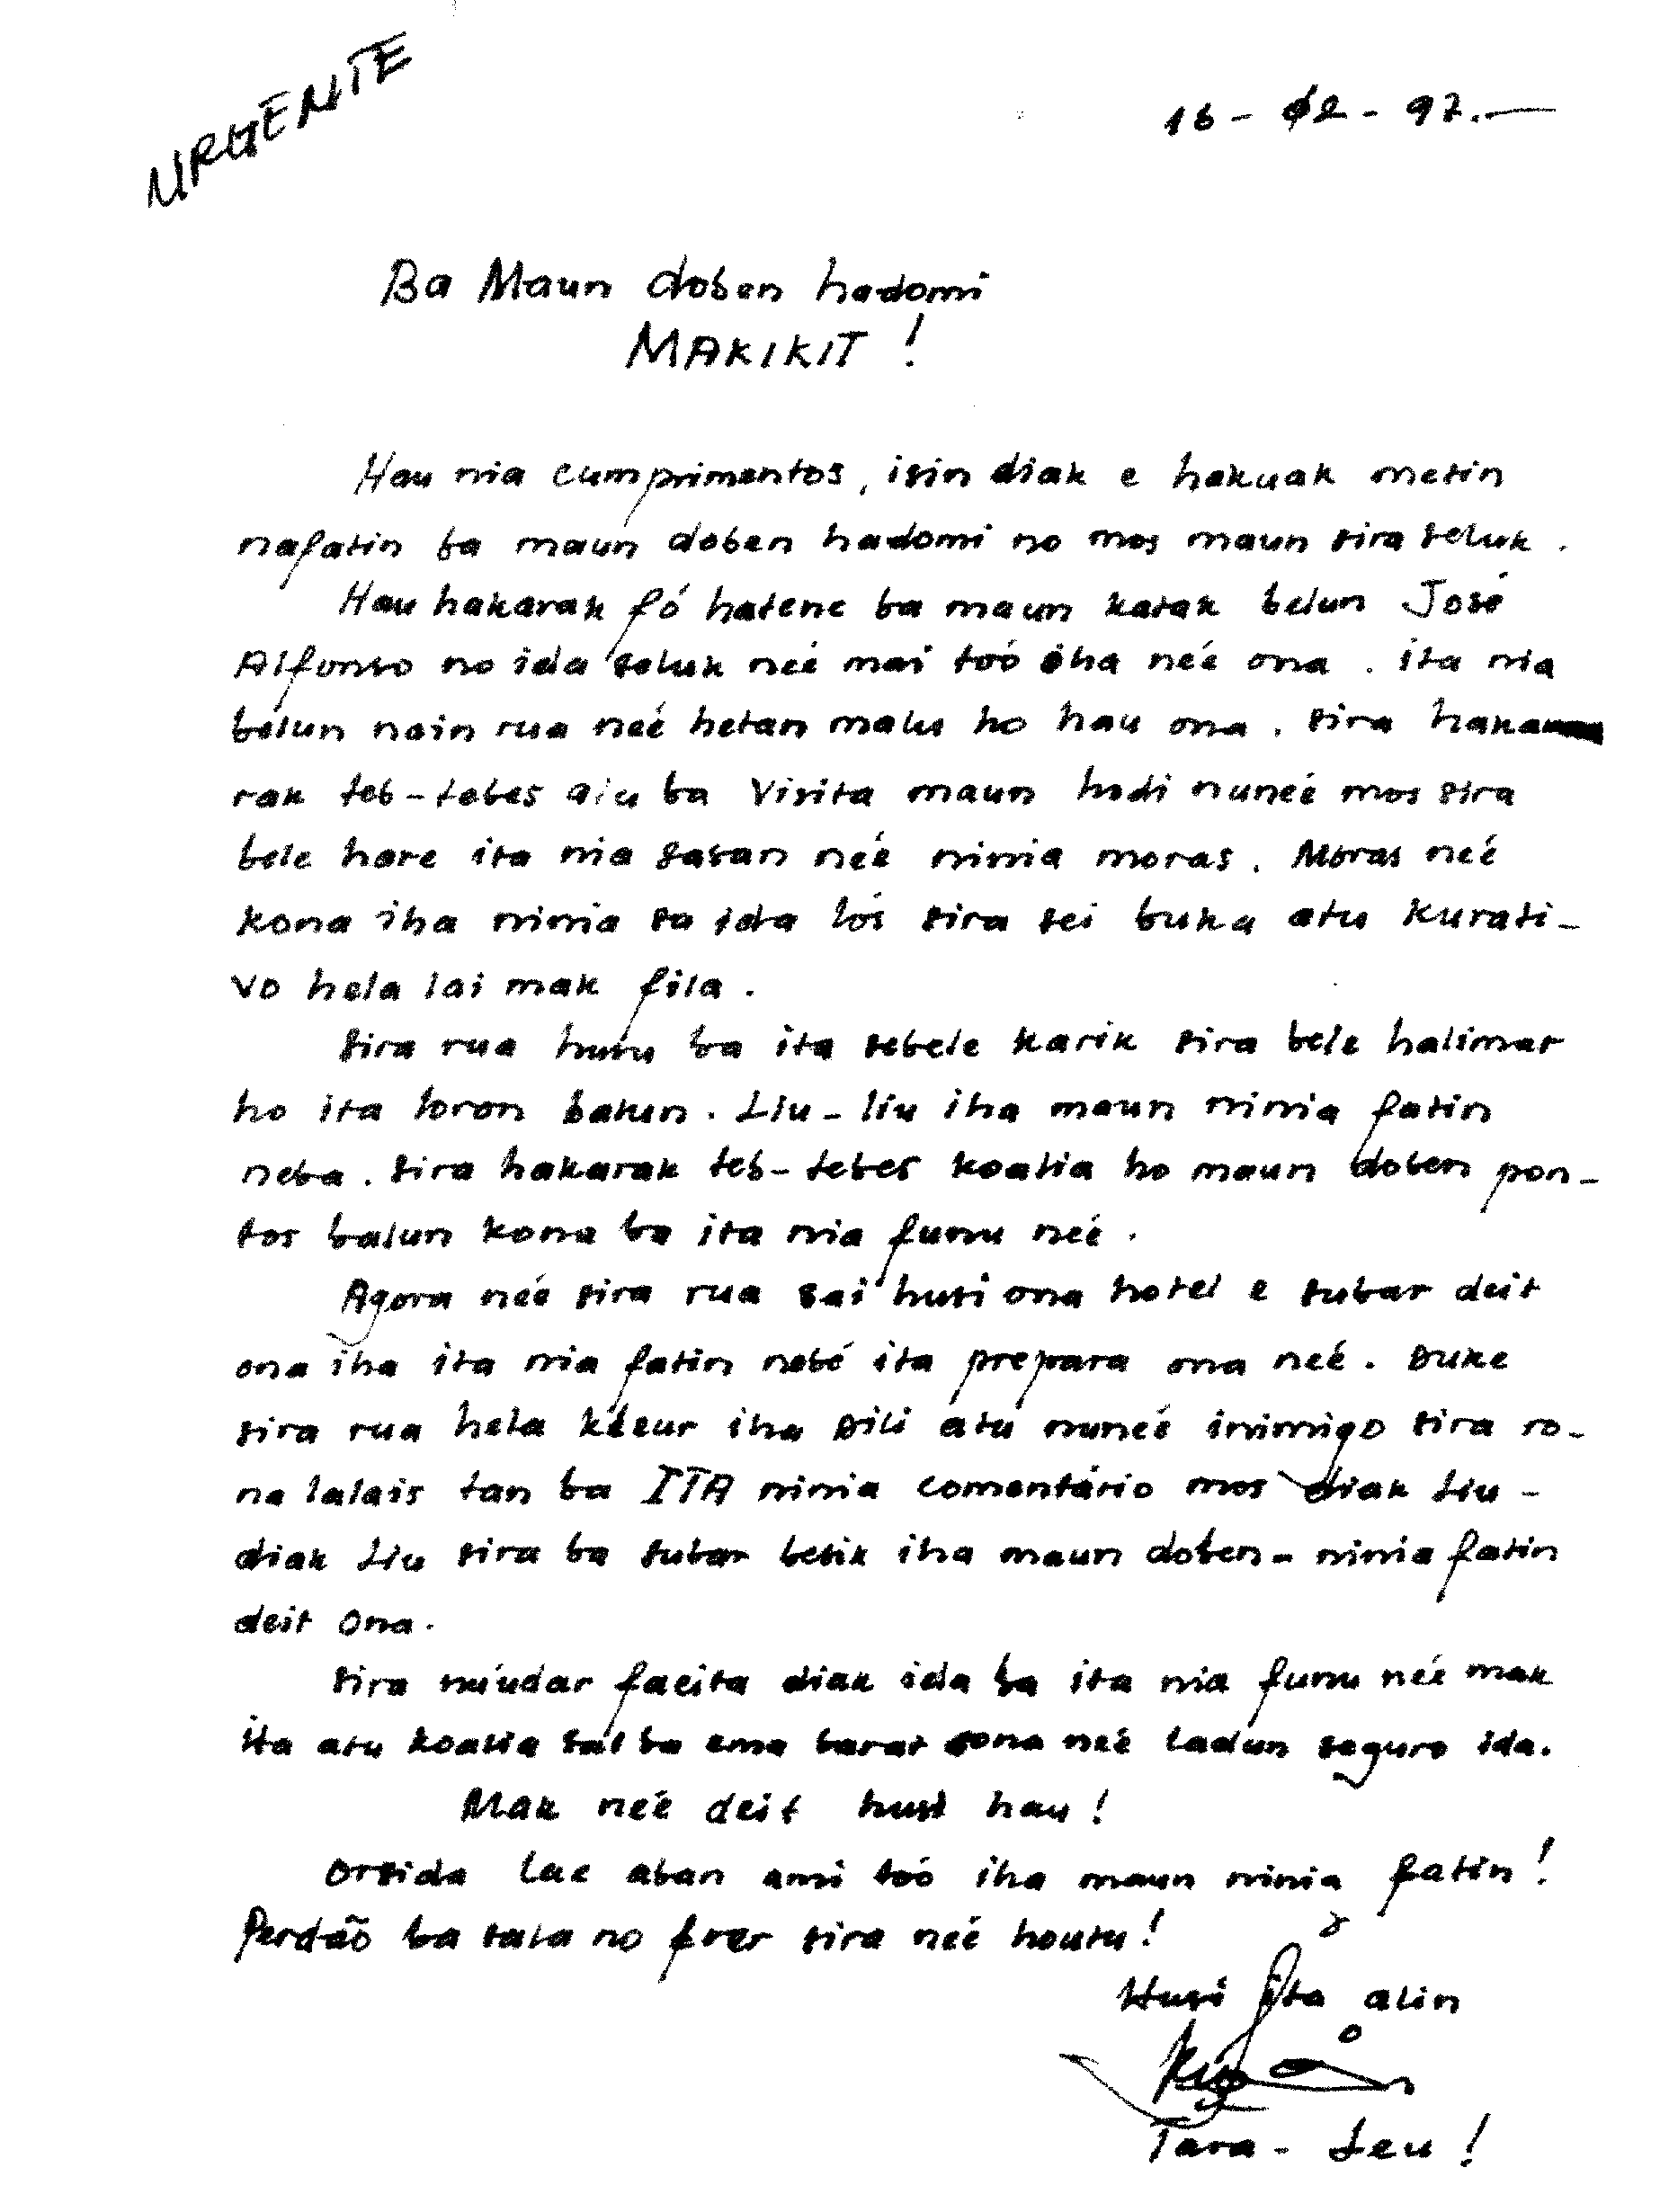 URGENTE
16 - 02 - 97.—
Ba Maun doben hadomi
MAKIKIT !
Hau nia cumprimentos, isin diak e hakuak metin
nafatin ba maun doben hadomi no mos maun sira seluk.
Hau hakarak fó hatene ba maun katak belun José
Alfonso no ida seluk neé mai toó iha neé ona. ita nia
belun nain rua neé hetan malu ho hau ona. sira haka
rak teb-tebes atu ba visita maun hodi nuneé mos sira
bele hare ita nia sasan neé ninia moras. Moras neé
kona iha ninia sa ida lós sira sei buka atu kurati-
vo hela lai mak fila.
Sira rua husu ba ita sebele karik sira bele halimar
ho ita loron balun. Liu-liu iha maun ninia fatin
neba. Sira hakarak teb-tebes koalia ho maun doben pon-
tos balun kona ba ita nia funu neé.
Agora neé sira rua sai husi ona hotel e subar deit
ona iha ita nia fatin nebé ita prepara ona neé. Duke
sira rua hela kleur iha Dili atu nuneé inimigo sira ro-
na lalais tan ba ITA ninia comentário mos diak Liu -
diak Liu sira ba subar besik iha maun doben - ninia fatin
deit ona.
Sira múdar faeita diak ida ba ita nia funu neé mak
ita atu koalia sai ba ema barat sona neé ladun seguro ida.
Mak neé deit husi hau!
Orsida lae aban ami toó iha maun ninia fatin!
Perdão ba sala no frer sira neé houtu!
Husi Ita alin
Tara - Leu !